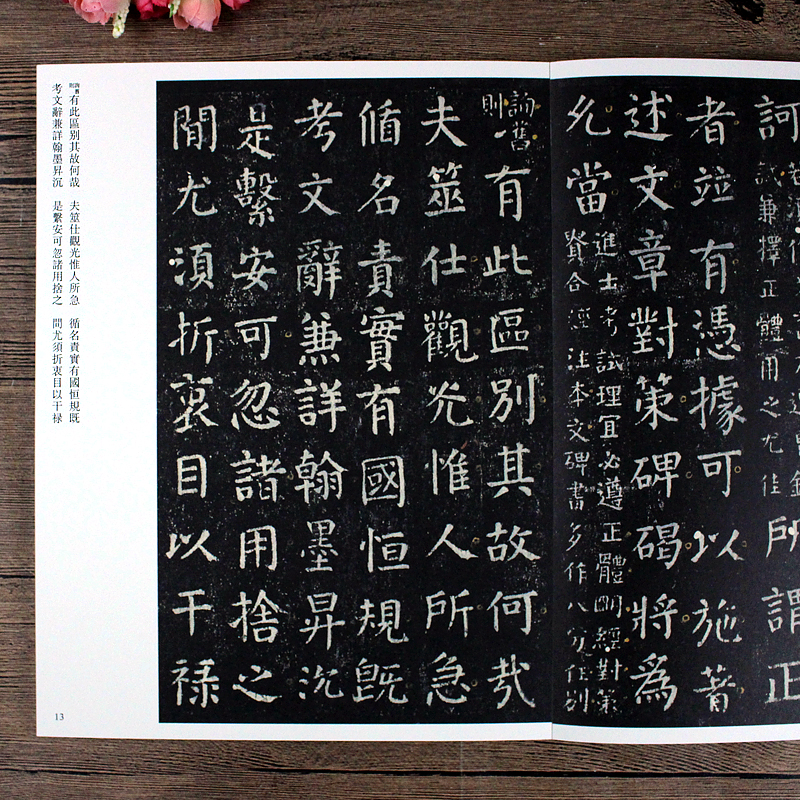 訶
試兼擇正體用之尤佳
所謂正
者竝有憑據可以施著
述文章對策碑碣將為
允當 進士考試理宜必遵正體明經對策
賢合經注本文碑書多作八分任別
詢舊
則 有此區別其故何哉
夫筮仕觀光惟人所急
循名責實有國恒規既
考文辭兼詳翰墨昇沉
是繫安可忽諸用捨之
間尤須折衷目以干禄
詢舊則 有此區别其故何哉 夫筮仕觀光惟人所急 循名責實有國恒規既
考文辭兼詳翰墨昇沉 是繫安可忽諸用捨之 問尤須折衷目以干禄
13